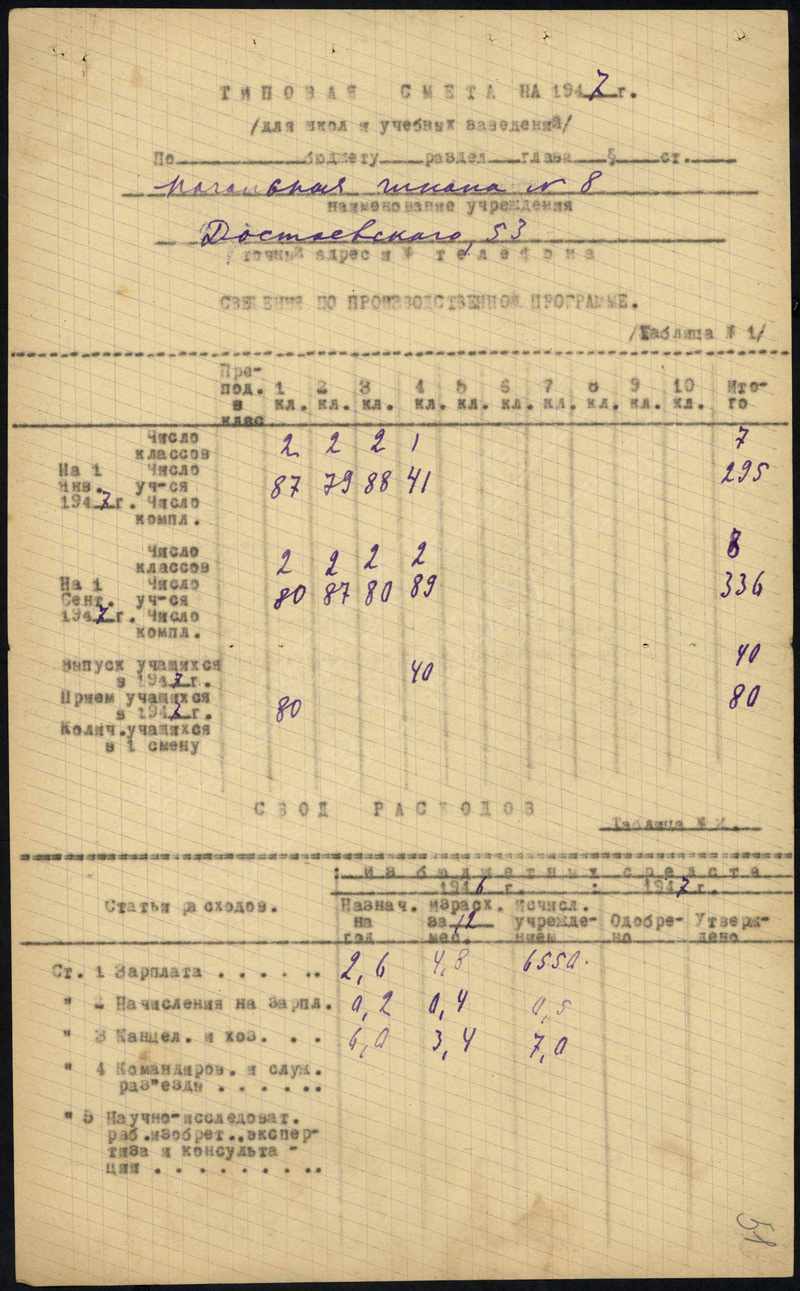 ТИПОВАЯ СМЕТА НА 1947 г.
/для школ и учебных заведений/
По бюджету раздел глава § ст.
Начальная школа № 8
наименование учреждения
Достоевского, 53
/точный адрес и № телефона
СВЕДЕНИЯ ПО ПРОИЗВОДСТВЕННОЙ ПРОГРАММЕ.
/Таблица № 1/
Пре-
под. 1 2 3 4 5 6 7 8 9 10 Ито-
в кл. кл. кл. кл. кл. кл. кл. кл. кл. кл. го
клас
Число 2 2 2 1 7
классов
На 1 Число 87 79 88 41 295
Янв. уч-ся
1947 г. Число
компл.
Число 2 2 2 2 8
классов
На 1 Число 80 87 80 89 336
Сент. уч-ся
1947 г. Число
компл.
Выпуск учащихся 40 40
в 1947 г.
Прием учащихся 80 80
в 1947 г.
Колич.учащихся
в 1 смену
СВОД РАСХОДОВ
Таблица № 2.
: Из бюджетных средств
1946 г. : 1947 г.
Статьи расходов. Назнач. израсх. исчисл.
на за 12 учрежде- Одобре- Утверж-
год мес. нием но дено
Ст. 1 Зарплата . . . . . .. 2,6 4,8 6550.
" 2 Начисления на зарпл. 0,2 0,4 0,5
" 3 Канцел. и хоз. . . . 6,0 3,4 7,0
" 4 Командиров. и служ.
раз"езды . . . . . .
" 5 Научно-исследоват.
раб.изобрет..экспер-
тиза и консульта -
ции . . . . . . . . ..
51